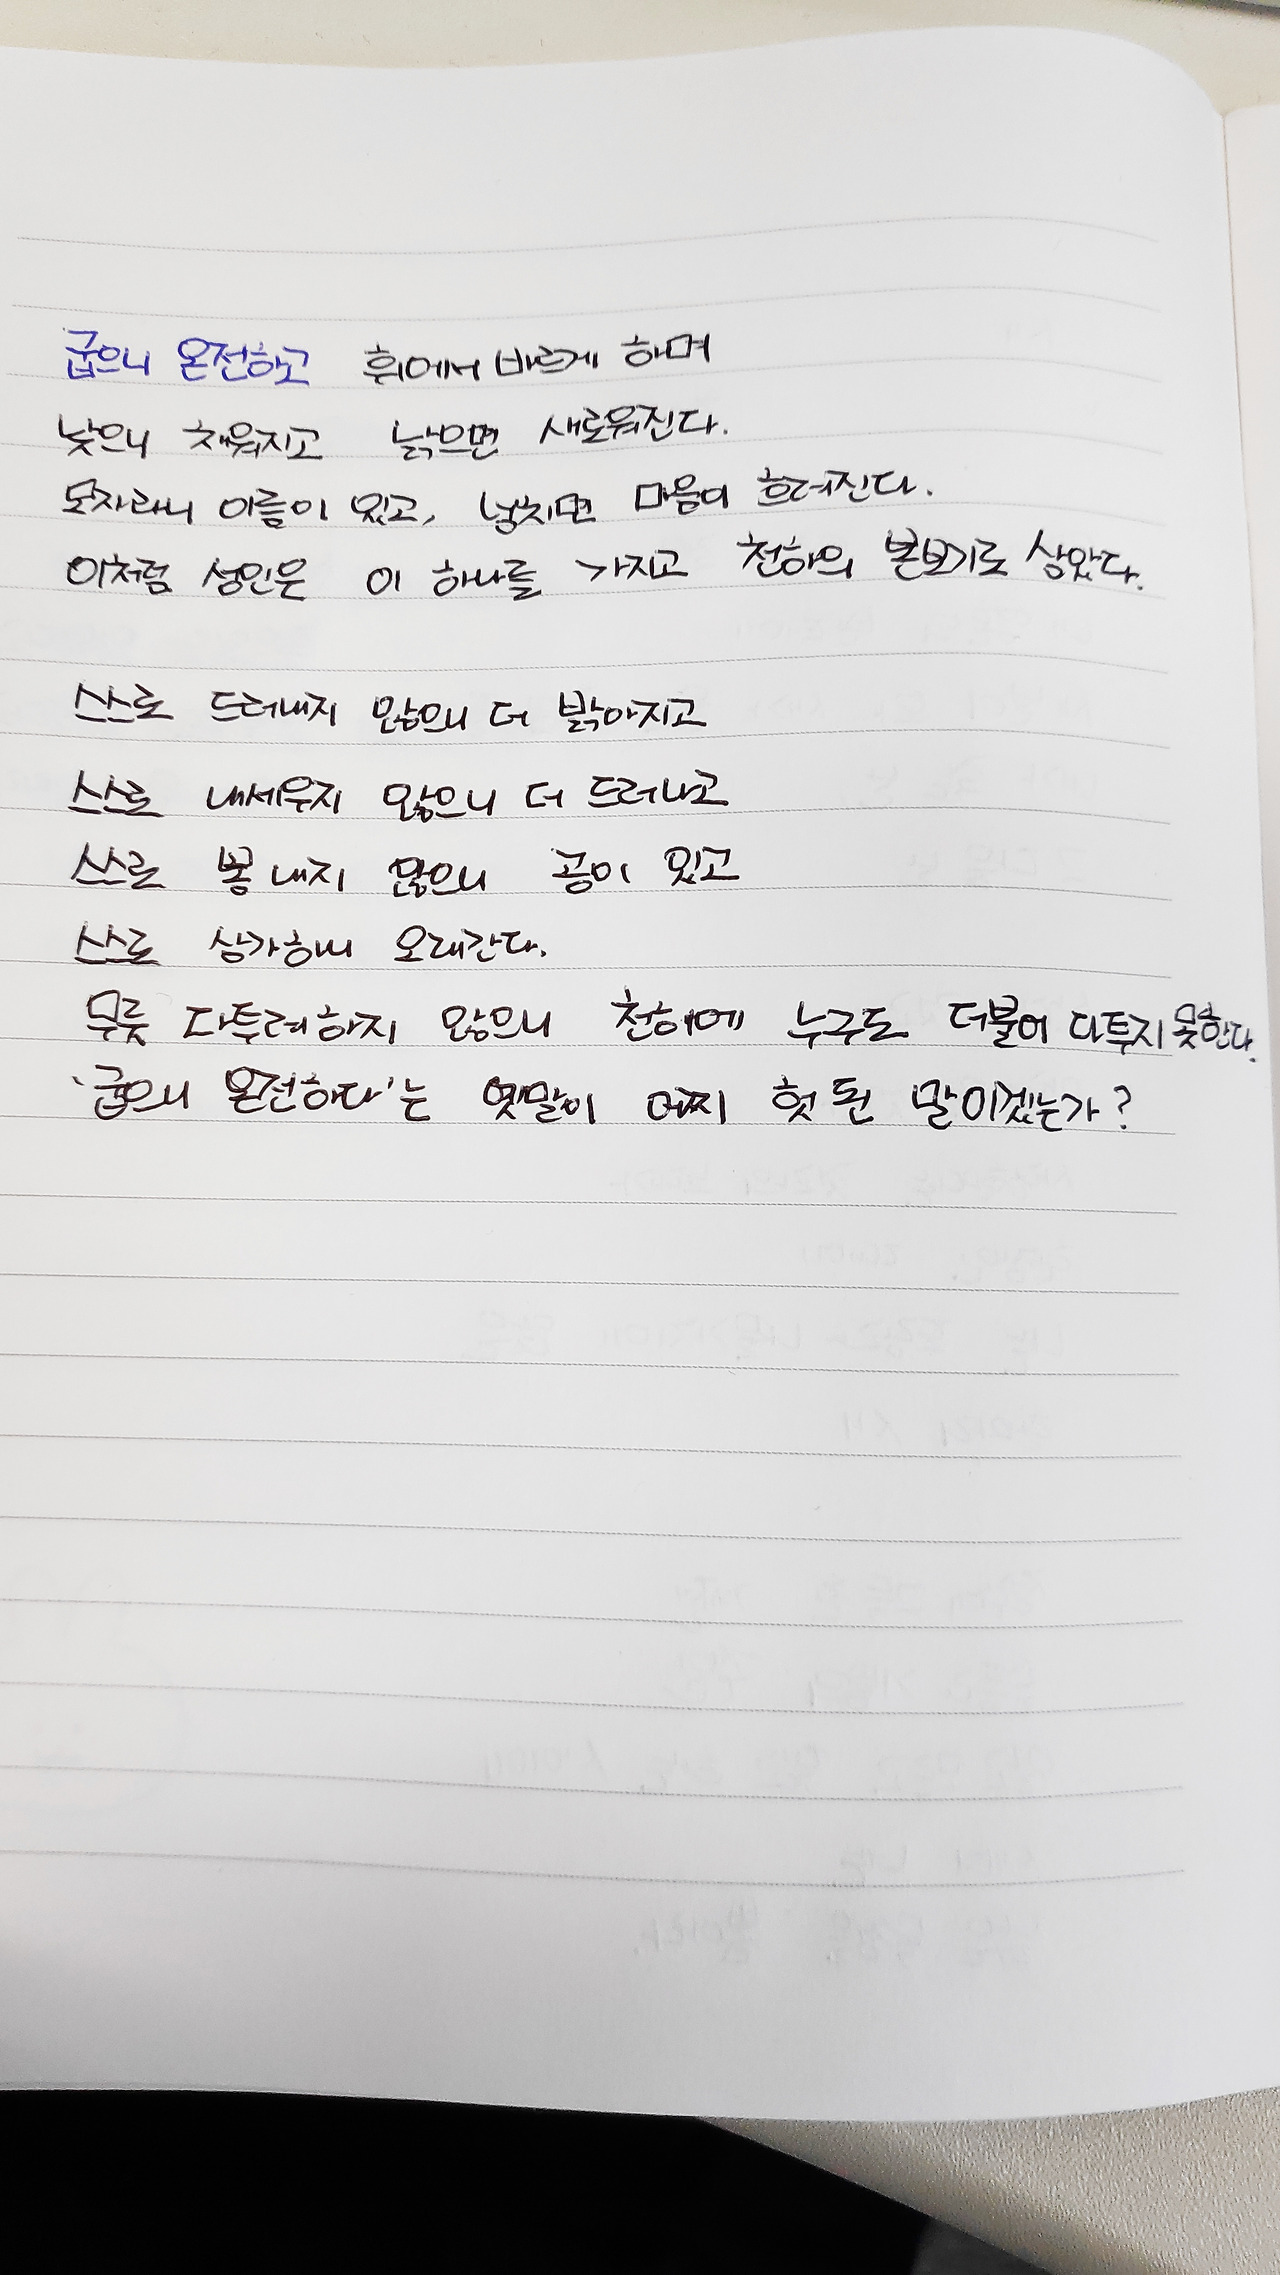 굽으니 온전하고 휘에서 바르게 하며
낮으니 채워지고 낡으면 새로워진다.
모자라니 이룸이 있고, 넘치면 마음이 흐려진다.
이처럼 성인은 이 하나를 가지고 천하의 본보기로 삼았다.
스스로 드러내지 않으니 더 밝아지고
스스로 내세우지 않으니 더 드러나고
스스로 뽐내지 않으니 공이 있고
스스로 삼가하니 오래간다.
무릇 다투려하지 않으니 천하에 누구도 더불어 다투지 못한다.
'굽으니 온전하다'는 옛말이 어찌 헛된 말이겠는가?